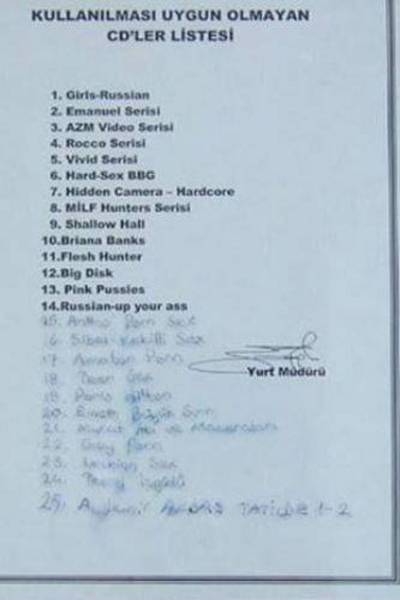 KULLANILMASI UYGUN OLMAYAN
CD'LER LİSTESİ
1. Girls-Russian
2. Emanuel Serisi
3. AZM Video Serisi
4. Rocco Serisi
5. Vivid Serisi
6. Hard-Sex BBG
7. Hidden Camera – Hardcore
8. MİLF Hunters Serisi
9. Shallow Hall
10.Briana Banks
11.Flesh Hunter
12.Big Disk
13. Pink Pussies
14.Russian-up your ass
Porn Sex
16 Sibel Kekilli Sex
17. Porn
Yurt Müdürü
18. Teen Sex
19. Paris Hilton
20.
21. ve
22. Porn
23. Lesbian Sex
24.
25. TATİLDE 1-2